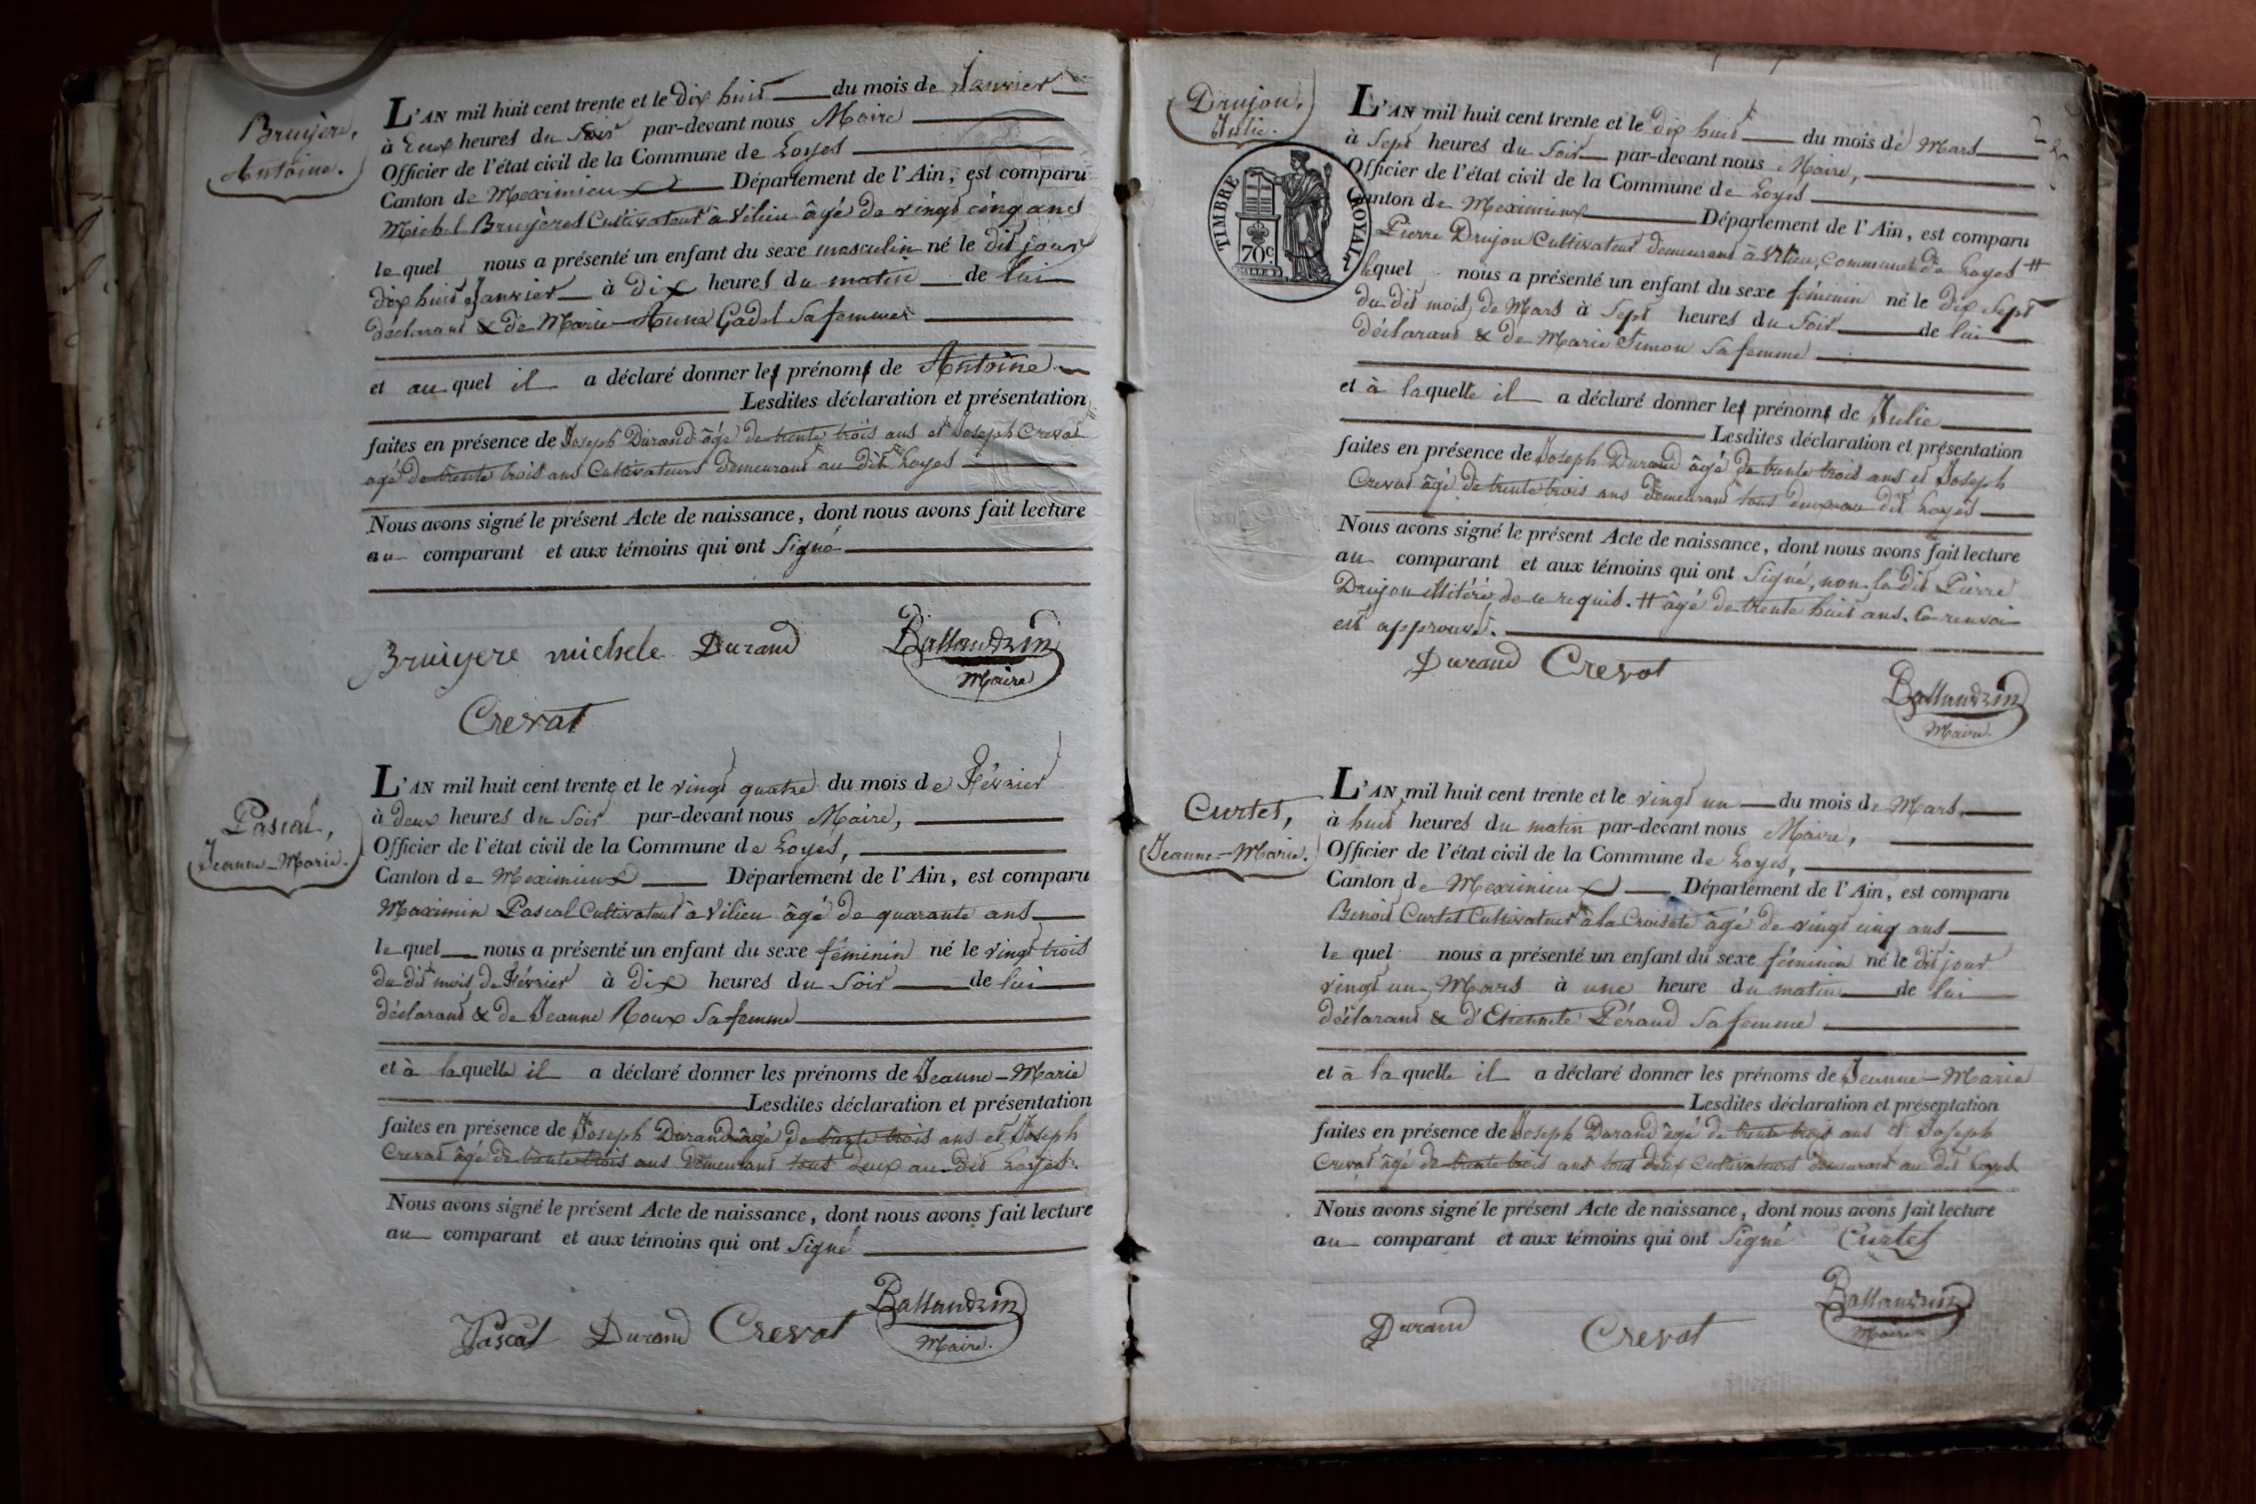 Bruyère,
Antoine.
L'AN mil huit cent trente et le dix huit du mois de Janvier
à Deux heures du Soir par-devant nous Maire
Officier de l'état civil de la Commune de Loyes
Canton de Meximieux Département de l'Ain, est comparu
Michel Bruyères Cultivateur à Vilieu âgé de vingt cinq ans
lequel nous a présenté un enfant du sexe masculin né le dit jour
dix huit Janvier à dix heures du matin de lui
déclarant & de Marie Anne Gadel Sa femme
et au quel il a déclaré donner les prénoms de Antoine
Lesdites déclaration et présentation
faites en présence de Joseph Durand âgé de trente trois ans et Joseph Crevat
agé de trente trois ans Cultivateurs demeurant au dit Loyes
Nous avons signé le présent Acte de naissance, dont nous avons fait lecture
au comparant et aux témoins qui ont Signé
Bruyere michele Durand Ballandrin
Maire
Crevat
Pascal,
Jeanne-Marie.
L'AN mil huit cent trente et le vingt quatre du mois de Février
à deux heures du Soir par-devant nous Maire,
Officier de l'état civil de la Commune de Loyes,
Canton de Meximieux Département de l'Ain, est comparu
Maximin Pascal Cultivateur à Vilieu âgé de quarante ans
lequel nous a présenté un enfant du sexe féminin né le vingt trois
du dit mois de Février à dix heures du Soir de lui
déclarant & de Jeanne Roux Sa femme
et à laquelle il a déclaré donner les prénoms de Jeanne-Marie
Lesdites déclaration et présentation
faites en présence de Joseph Durand âgé de trente trois ans et Joseph
Crevat âgé de trente trois ans demeurant tous deux au dit Loyes.
Nous avons signé le présent Acte de naissance, dont nous avons fait lecture
au comparant et aux témoins qui ont Signé
Pascal Durand Crevat Ballandrin
Maire.
Drujon,
Julie.
2
TIMBRE ROYAL
70 c
L'AN mil huit cent trente et le dix huit du mois de Mars
à Sept heures du Soir par-devant nous Maire,
Officier de l'état civil de la Commune de Loyes
Canton de Meximieux Département de l'Ain, est comparu
Pierre Drujon Cultivateur demeurant à Vilieu, commune de Loyes #
lequel nous a présenté un enfant du sexe féminin né le dix Sept
du dit mois de Mars à Sept heures du Soir de lui
déclarant & de Marie Simon Sa femme
et à laquelle il a déclaré donner les prénoms de Julie
Lesdites déclaration et présentation
faites en présence de Joseph Durand âgé de trente trois ans et Joseph
Crevat âgé de trente trois ans demeurant tous deux au dit Loyes
Nous avons signé le présent Acte de naissance, dont nous avons fait lecture
au comparant et aux témoins qui ont Signé, non le dit Pierre
Drujon illitéré de ce requis. # âgé de trente huit ans. Ce renvoi
est approuvé.
Durand Crevat
Ballandrin
Maire.
Curtet,
Jeanne-Marie.
L'AN mil huit cent trente et le vingt un du mois de Mars,
à huit heures du matin par-devant nous Maire,
Officier de l'état civil de la Commune de Loyes,
Canton de Meximieux Département de l'Ain, est comparu
Benoit Curtet Cultivateur à la Croisete âgé de vingt cinq ans
lequel nous a présenté un enfant du sexe féminin né le dit jour
vingt un Mars à une heure du matin de lui
déclarant & d'Etiennete Pérand Sa femme
et à laquelle il a déclaré donner les prénoms de Jeanne-Marie
Lesdites déclaration et présentation
faites en présence de Joseph Durand âgé de trente trois ans et Joseph
Crevat âgé de trente trois ans tout deux Cultivateurs demeurant au dit Loyes
Nous avons signé le présent Acte de naissance, dont nous avons fait lecture
au comparant et aux témoins qui ont Signé Curtet
Ballandrin
Durand Crevat Maire